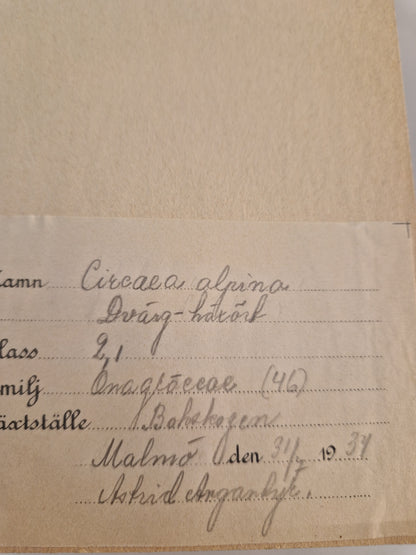 amn Circaea alpina
Dvärg-häxört
lass 2,1
milj Onagraceae (46)
äxtställe Bokskogen
Malmö den 31/7 19 37
Astrid